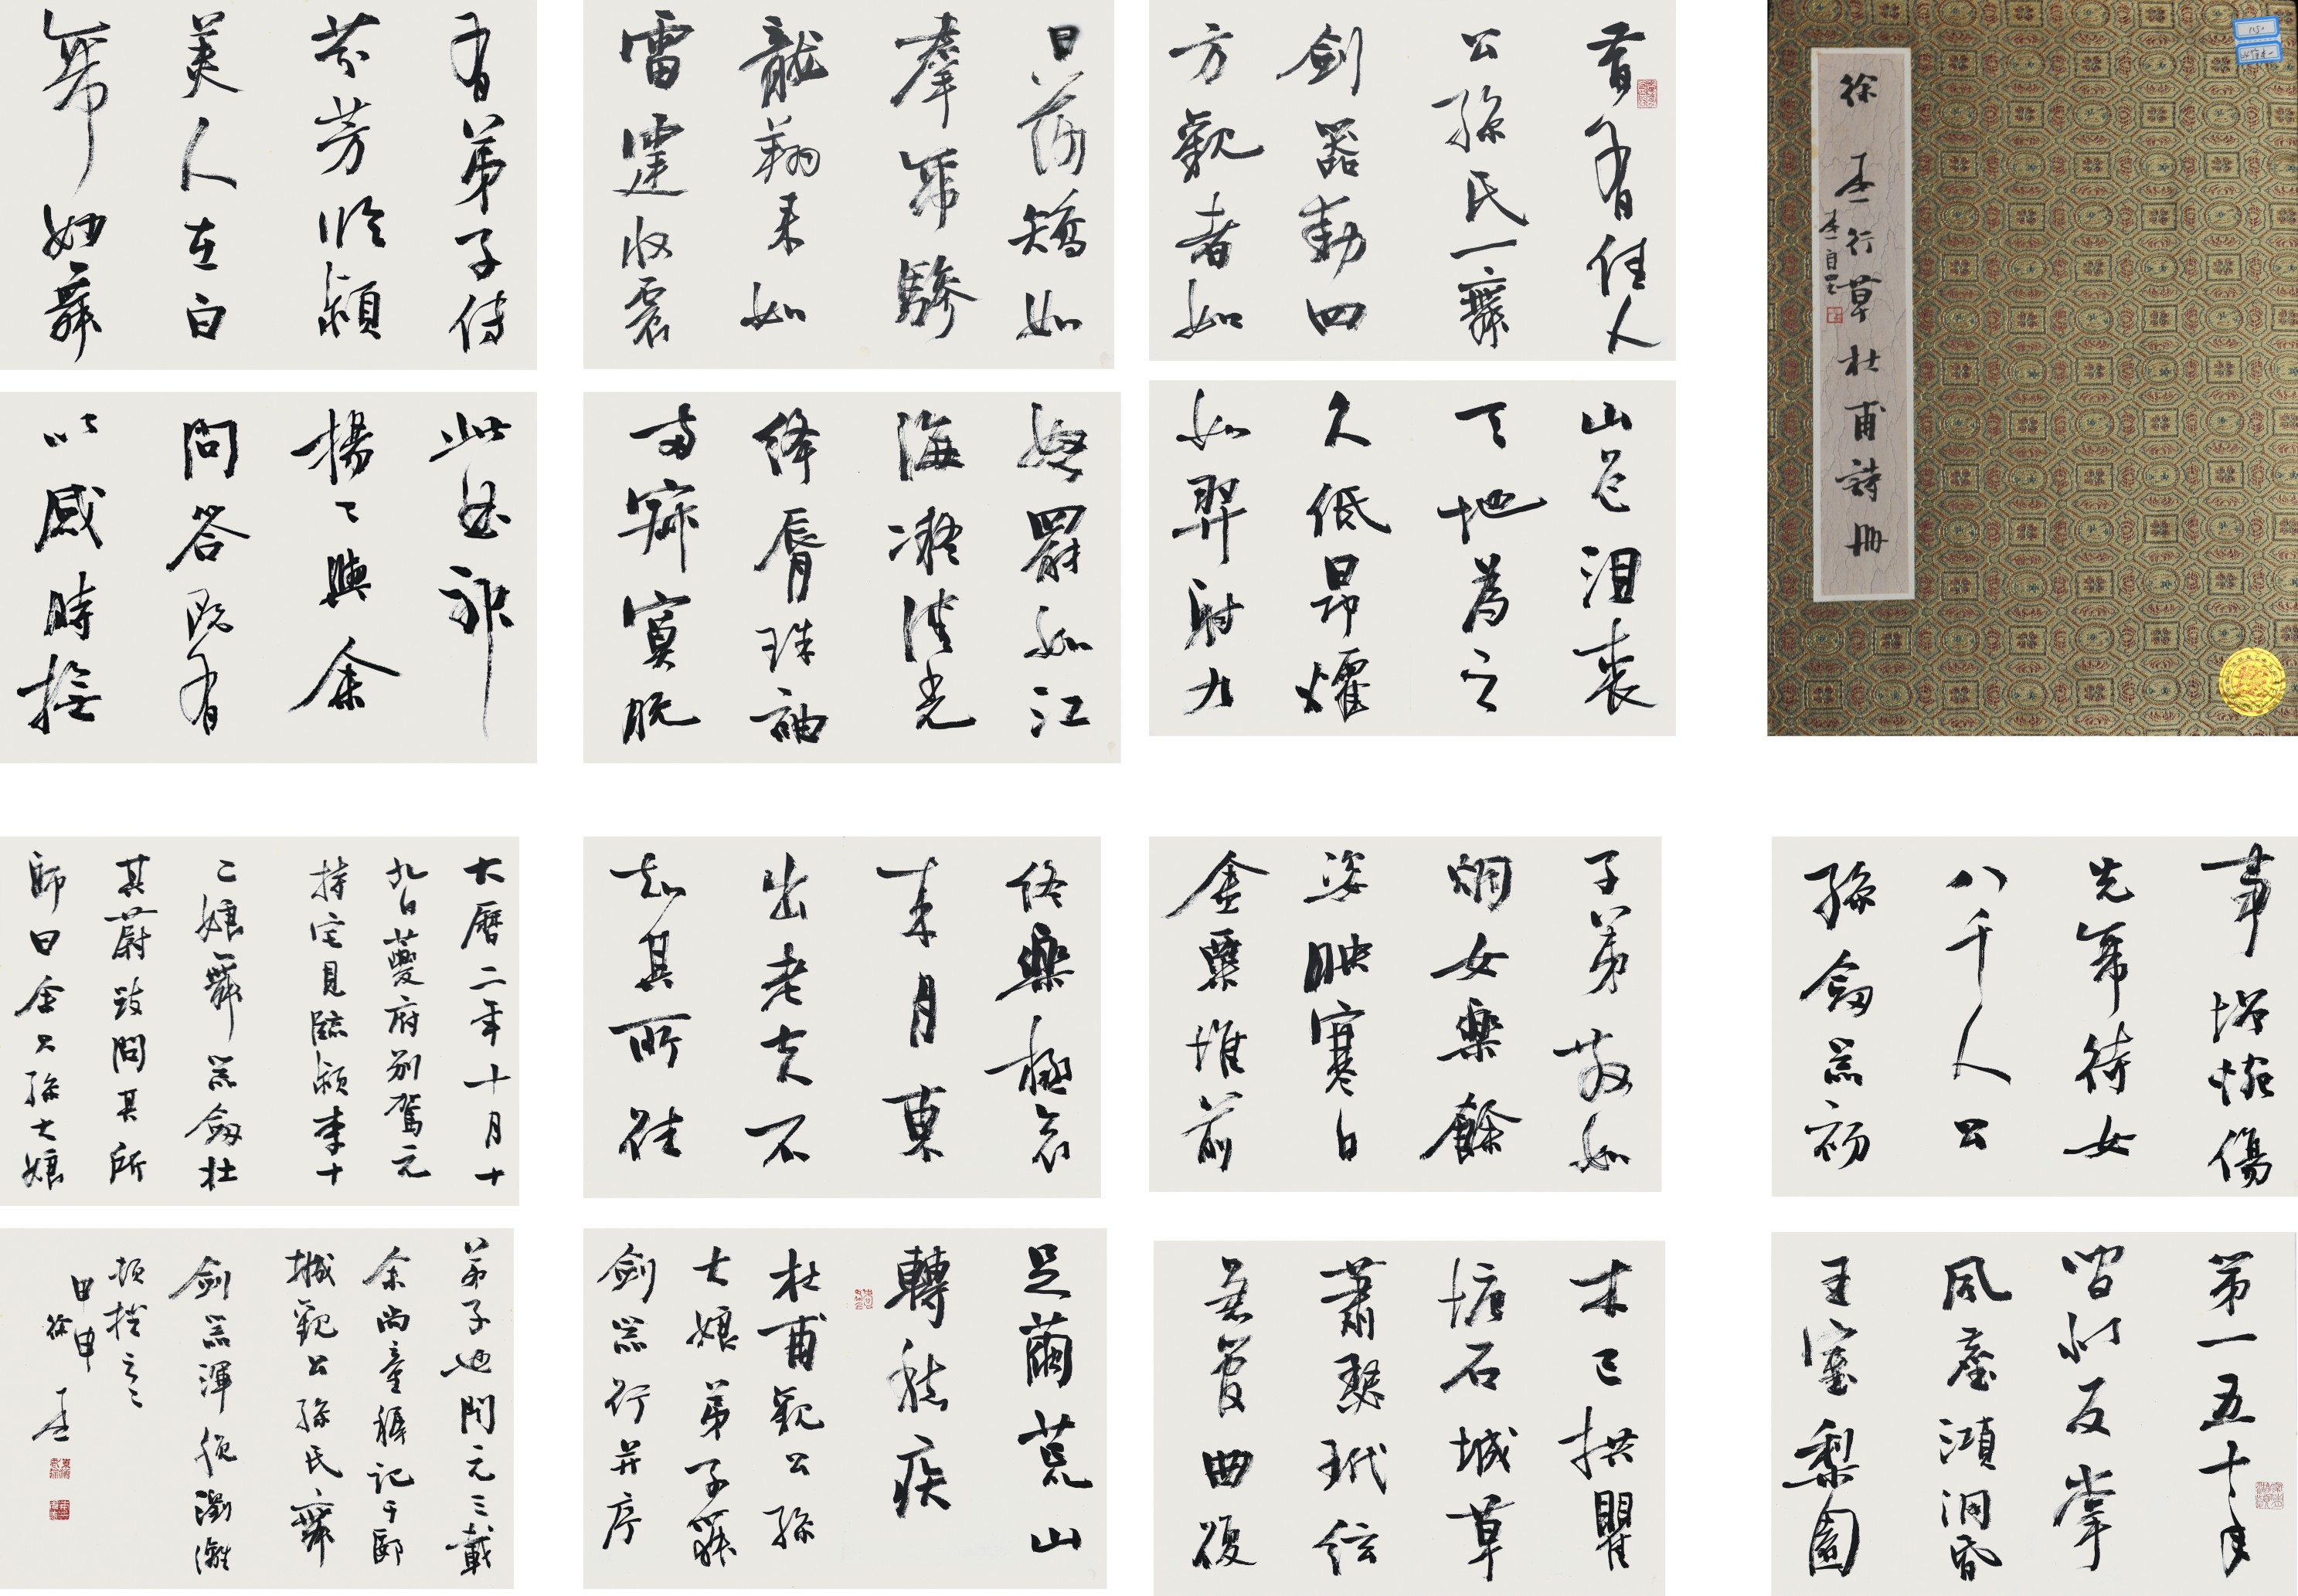 徐行草杜甫詩冊
昔有佳人
公孫氏一舞
劍器動四
方觀者如
山色沮喪
天地為之
久低昂㸌
如羿射九
日落矯如
羣帝驂
龍翔來如
雷霆收震
怒罷如江
海凝清光
絳脣珠袖
兩寂寞晚
有弟子傳
芬芳臨潁
美人在白
帝妙舞
此曲神
揚〻與余
問答既有
以感時撫
事增惋傷
先帝侍女
八千人公
孫劒器初
第一五十年
間似反掌
風塵澒洞昏
王室梨園
子弟散如
烟女樂餘
姿映寒日
金粟堆前
木已拱瞿
塘石城草
蕭瑟玳弦
急管曲復
終樂極哀
來月東
出老夫不
知其所往
足繭荒山
轉愁疾
杜甫觀公孫
大娘弟子舞
劍器行并序
大曆二年十月十
九日夔府別駕元
持宅見臨潁李十
二娘舞器劒壯
其蔚跂問其所
師曰余公孫大娘
弟子也開元三載
余尚童穉記于郾
城觀公孫氏舞
劍器渾脫瀏灕
頓挫云云
甲申
徐